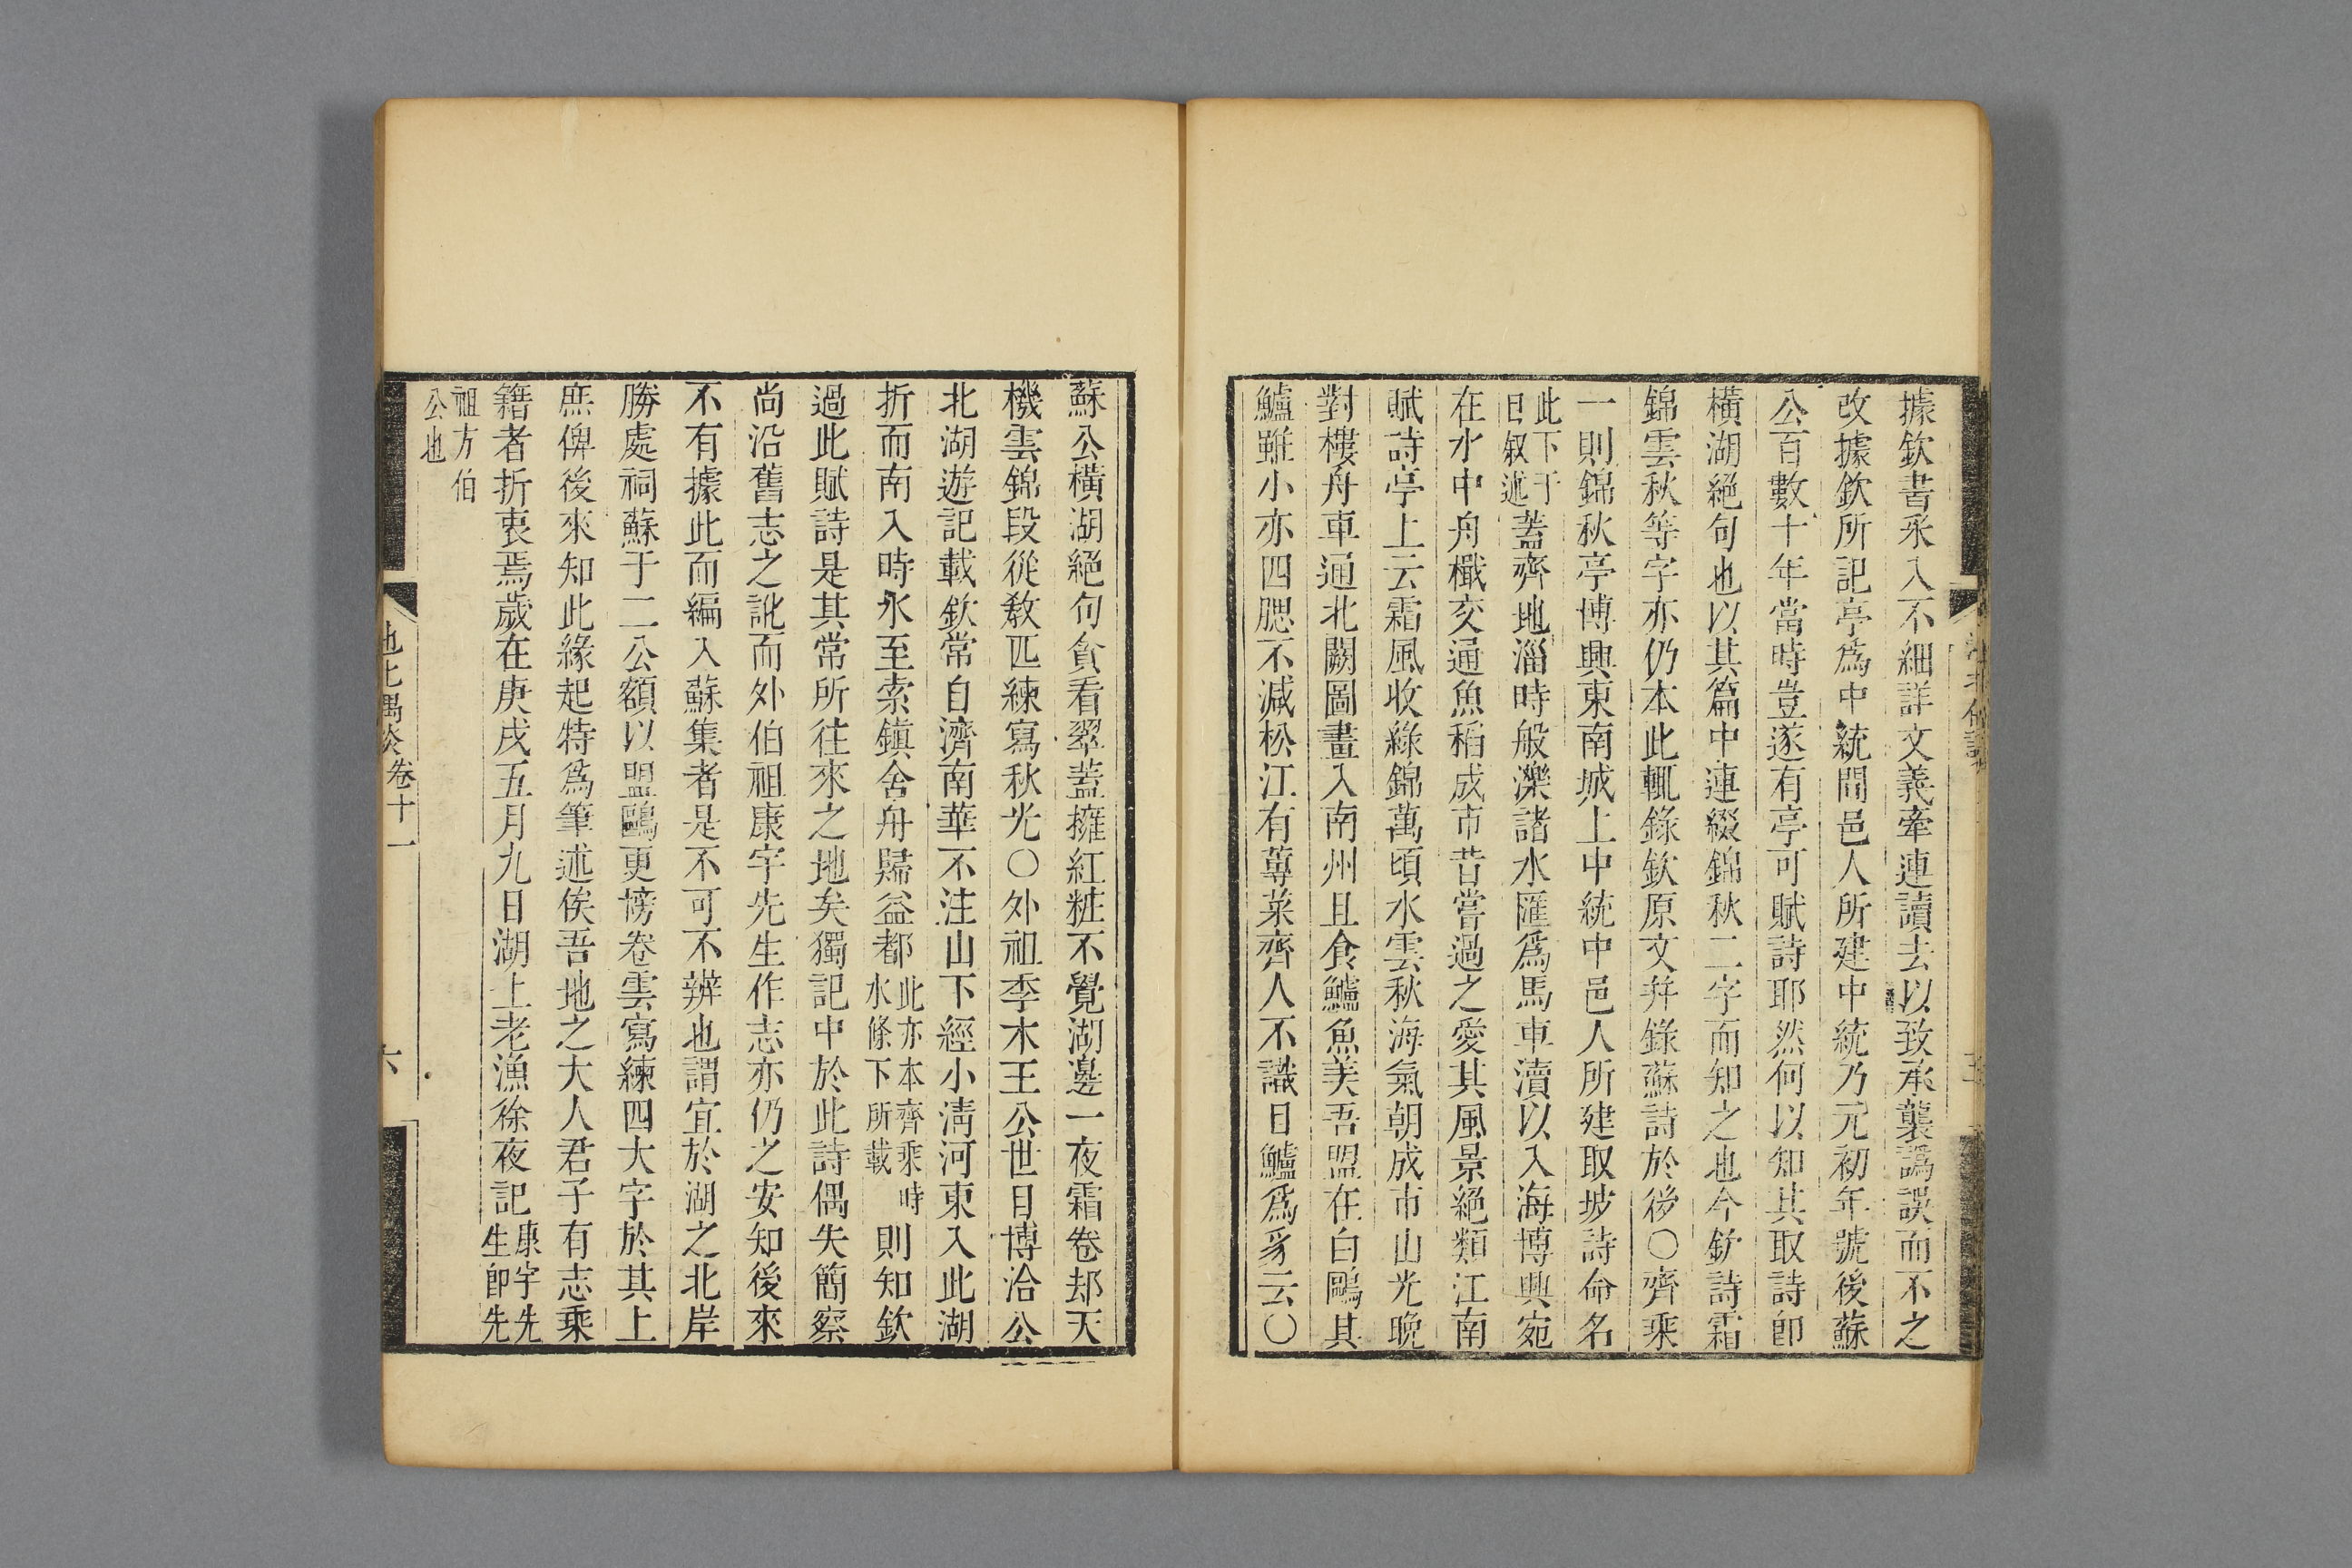 據欽書采入不細詳文義牽連讀去以致承襲譌誤而不之
改據欽所記亭爲中統間邑人所建中統乃元初年號後蘇
公百數十年當時豈遂有亭可賦詩耶然何以知其取詩卽
橫湖絕句也以其篇中連綴錦秋二字而知之也今欽詩霜
錦雲秋等字亦仍本此輒錄欽原文幷錄蘇詩於後〇齊乘
一則錦秋亭博興東南城上中統中邑人所建取坡詩命名
此下于
日叙述
蓋齊地淄時般濼諸水匯爲馬車瀆以入海博興宛
在水中舟檝交通魚稻成市昔嘗過之愛其風景絕類江南
賦詩亭上云霜風收綠錦萬頃水雲秋海氣朝成市山光晚
對樓舟車通北闕圖畫入南州且食鱸魚美吾盟在白鷗其
鱸雖小亦四腮不減松江有蓴菜齊人不識日鱸爲豸云〇
蘇公橫湖絕句貪看翠蓋擁紅粧不覺湖邊一夜霜卷却天
機雲錦段從敎匹練寫秋光〇外祖李木王公世目博洽公
北湖遊記載欽常自濟南華不注山下經小淸河東入此湖
折而南入時水至索鎭舍舟歸益都
此亦本齊乘時
水條下所載
則知欽
過此賦詩是其常所往來之地矣獨記中於此詩偶失簡察
尚沿舊志之訛而外伯祖康宇先生作志亦仍之安知後來
不有據此而編入蘇集者是不可不辨也謂宜於湖之北岸
勝處祠蘇于二公額以盟鷗更牓卷雲寫練四大字於其上
庶俾後來知此緣起特爲筆述俟吾地之大人君子有志乘
籍者折衷焉歲在庚戌五月九日湖上老漁徐夜記
康宇先
生卽先
祖方伯
公也
池北偶談 卷十一
六